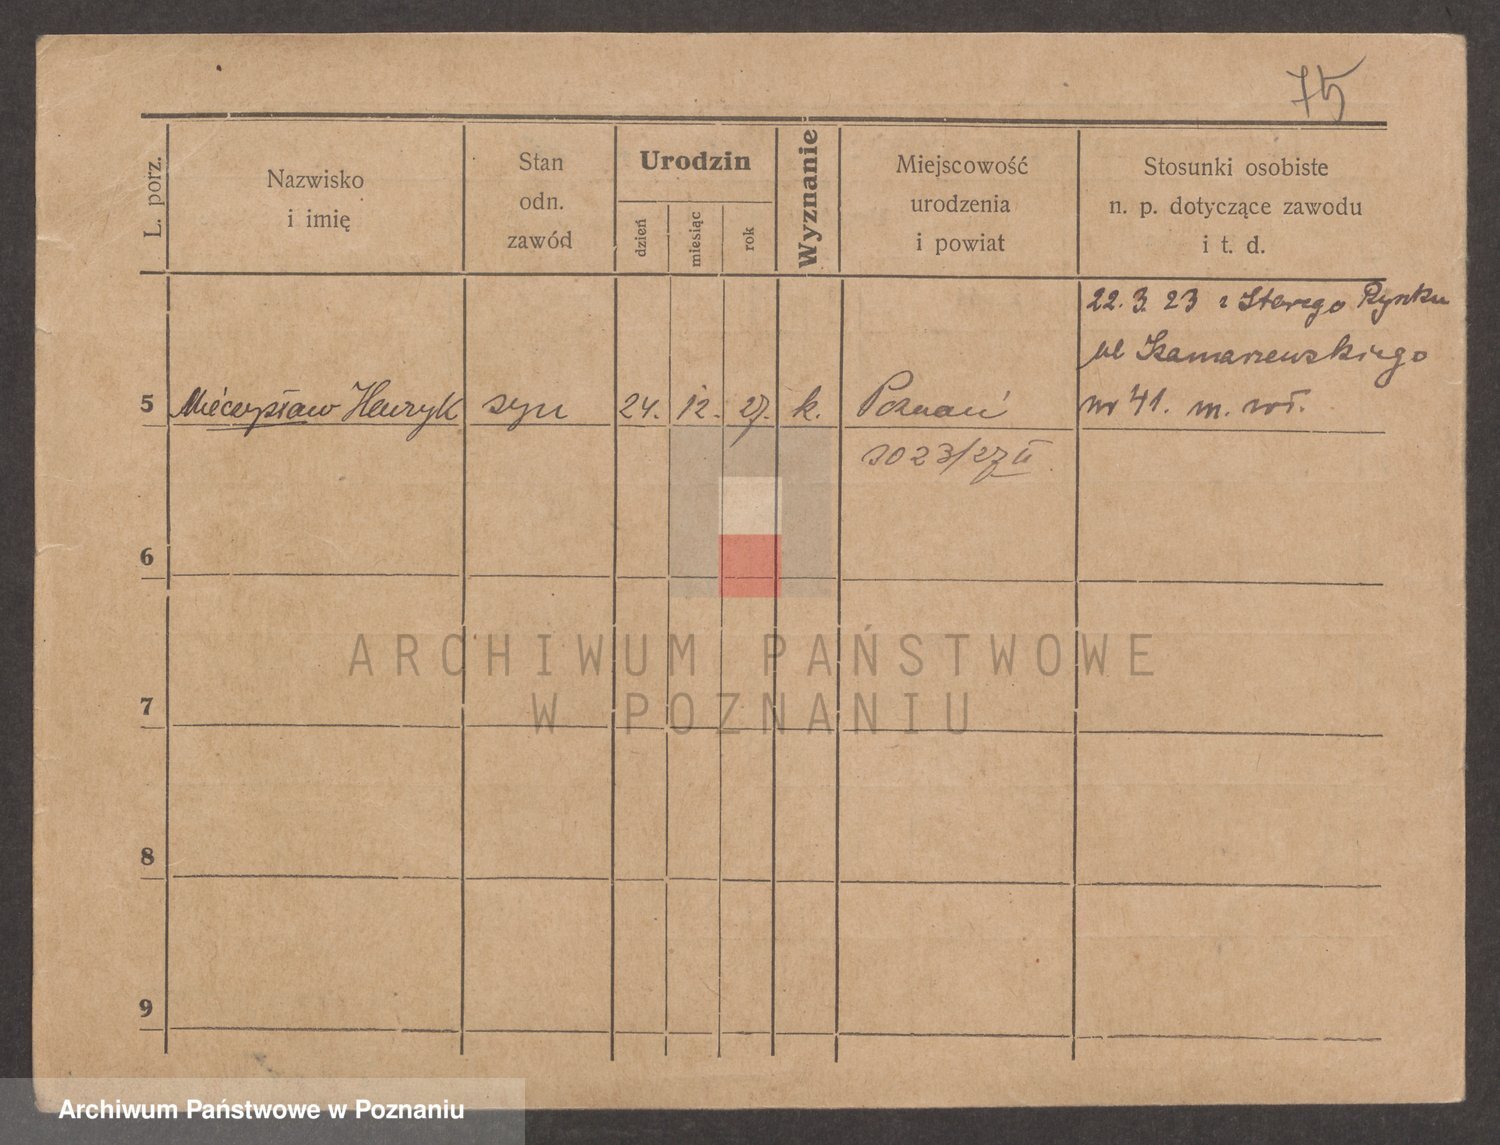 75
L. porz.
Nazwisko
i imię
Stan
odn.
zawód
Urodzin
dzień
miesiąc
rok
Wyznanie
Miejscowość
urodzenia
i powiat
Stosunki osobiste
n. p. dotyczące zawodu
i t. d.
22. 3. 23 z Starego Rynku
ul Szamarzewskiego
nr 41. m. wł.
5 Mieczysław Henryk syn 24. 12. 27. k. Poznań
23/27 II
6
7
8
9
ARCHIWUM PAŃSTWOWE
W POZNANIU
Archiwum Państwowe w Poznaniu